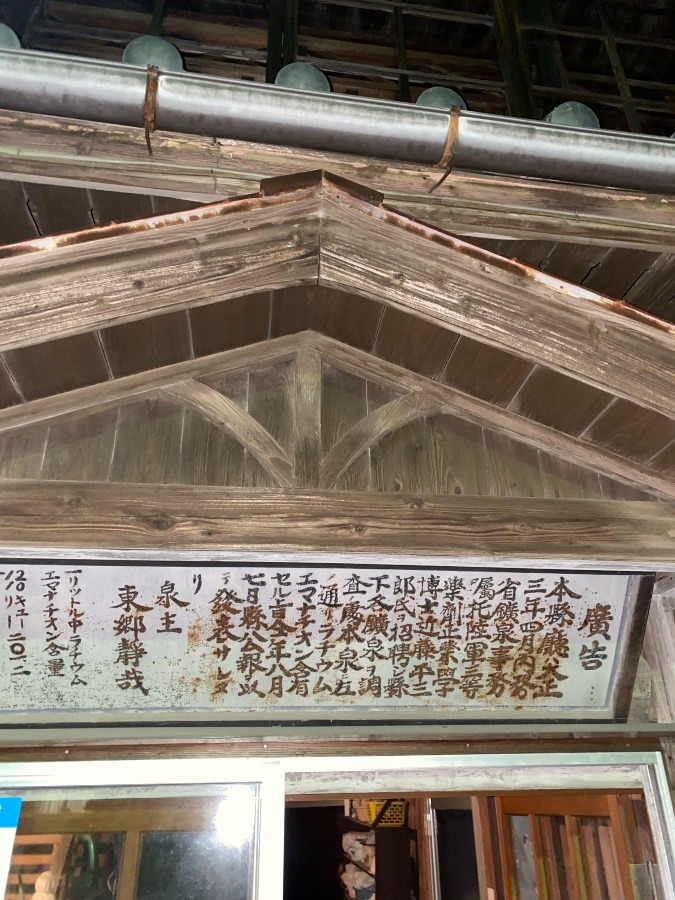 廣告
本縣廳大正
三年四月内務
省鑛泉事務
嘱托陸軍一等
藥剤正藥學
博士近藤平三
郎氏ヲ招聘シ縣
下各鑛泉ヲ調
査處本泉ハ左
ノ通リラヂウム
エマナチオン含有
セル旨仝年八月
七日縣公報ヲ以
テ發表サレタ
リ
泉主
東郷靜哉
一リットル中ラヂウム
エマナチオン含量